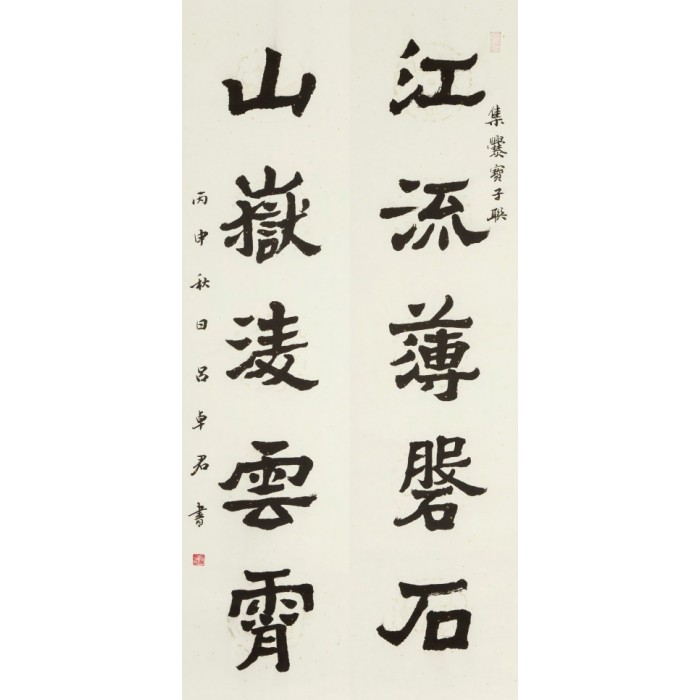 集爨寳子联
江流薄磐石
山嶽淩雲霄
丙申秋日吕卓君書